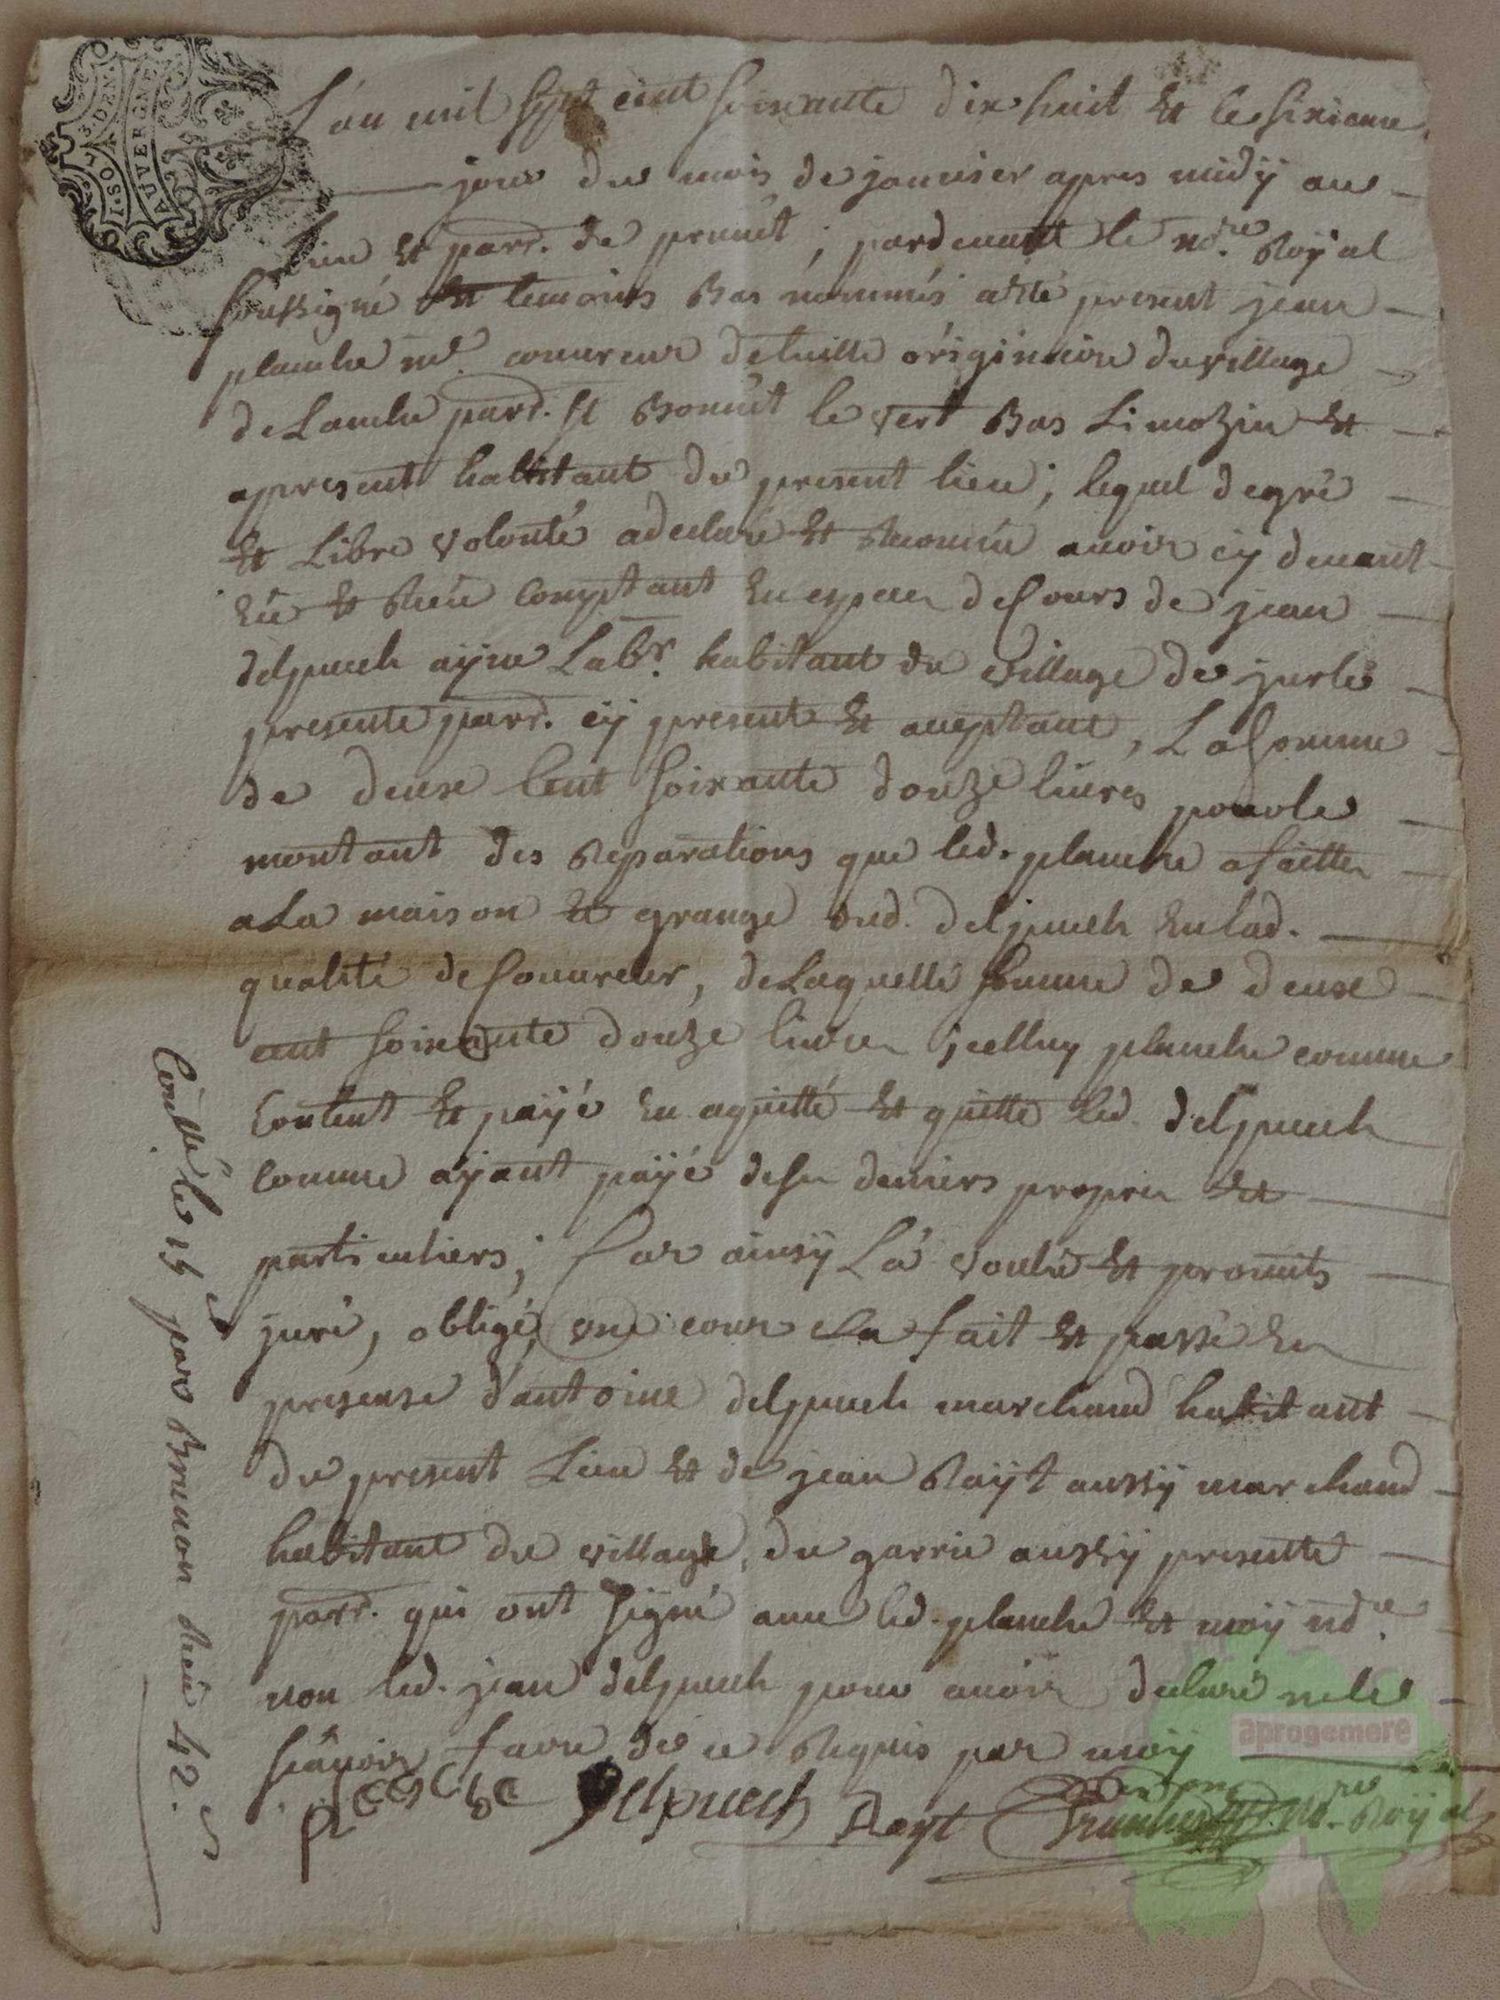 1. SOL 3. DEN.
AUVERGNE
L'an mil sept cent soixante dix huit et le sixieme
jour du mois de janvier apres midÿ au
lieu et parr. de prunet ; pardevant le nore Roÿal
soussigné et temoins Bas nommés a été present jean
planche me couvreur de tuille originaire du village
de Lanche parr. St Bonnet le vert Bas Limozin et
apresent habitant du present lieu ; lequel de gré
et Libre volonté a declaré et Reconnu avoir cÿ devant
eu et Reçu Comptant en especes de cours de jean
delpuech aÿné Labr. habitant du village de jurlé
presente parr. cÿ present et aceptant, La somme
de deuxe Cent soixante douze livres pour le
montant des Reparations que led. planche a faittes
a La maison et grange dud. delpuech en lad.
qualité de Couvreur, de Laquelle somme de deuxe
cent soixante douze livres jcelluy planche comme
Content et paÿé en a quitté et quitte led. delpuech
Comme aÿant paÿé de ses deniers propres et
particuliers ; Car ainsÿ L'a voulu et promits
juré, obligé, une cour fait et passé en
presense d'antoine delpuech marchand habitant
du present Lieu et de jean Raÿt aussÿ marchand
habitant du village du garric aussÿ presentte
parr. qui ont signé avec led. planche et moÿ nore
non led. jean delpuech pour avoir declaré ne le
sçavoir faire de ce Requis par moÿ
Delpuech Rayt nore Roÿal
Conllé le 15 par Bruon Reçu 42 s
aprogemere